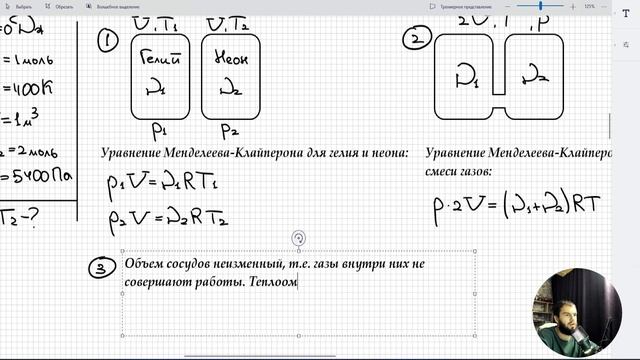 Выбрать
Разрезать
Волшебное выделение
Трехмерное представление
125%
= 1 моль
= 400К
= 1 м³
= 2 моль
= 5400 Па
T₂ - ?
1
V, T₁
V, T₂
Гелий
Неон
ν₁
ν₂
p₁
p₂
Уравнение Менделеева-Клайперона для гелия и неона:
p₁V = ν₁RT₁
p₂V = ν₂RT₂
2
2V, T, p
ν₁
ν₂
Уравнение Менделеева-Клайперо
смеси газов:
p·2V = (ν₁+ν₂)RT
3
Объем сосудов неизменный, т.е. газы внутри них не
совершают работы. Теплоом